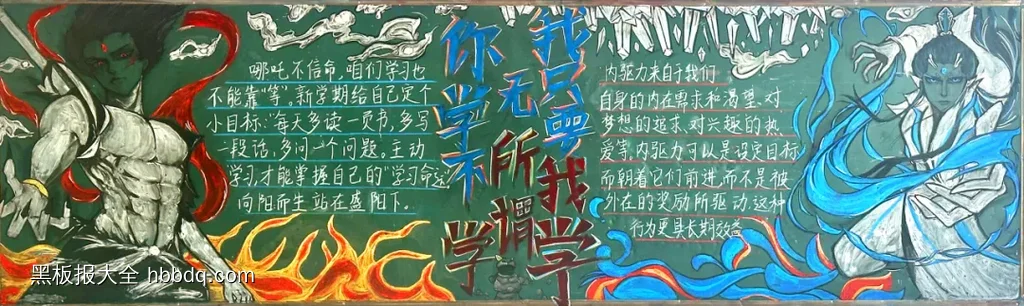 哪吒不信命，咱们学习也
不能靠“等”。新学期给自己定个
小目标：“每天多读一页书，多写
一段话，多问一个问题。主动
学习，才能掌握自己的“学习命运
向阳而生站在盛阳下。
你学不学
无所谓
我只要我学
内驱力来自于我们
自身的内在需求和渴望、对
梦想的追求、对兴趣的热
爱等，内驱力可以是设定目标
而朝着它们前进，而不是被
外在的奖励所驱动，这种
行为更具长期效益
黑板报大全 hbbdq.com